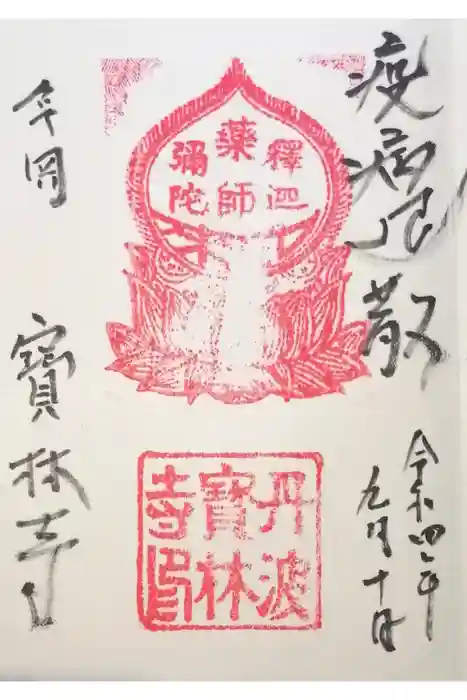 疫病退散
令和四年
九月十日
釋迦
藥師
彌陀
丹波
寶林
寺印
岡 寶林寺